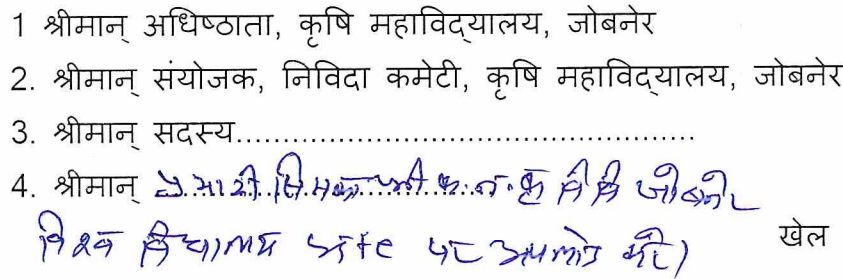 1 श्रीमान् अधिष्ठाता, कृषि महाविद्यालय, जोबनेर
2. श्रीमान् संयोजक, निविदा कमेटी, कृषि महाविद्यालय, जोबनेर
3. श्रीमान् सदस्य.......................................................
4. श्रीमान् प्रभारी सिमका श्री क. न. कृ वि वि जोबनेर
विश्व विद्यालय साईट पर अपलोड करें। खेल